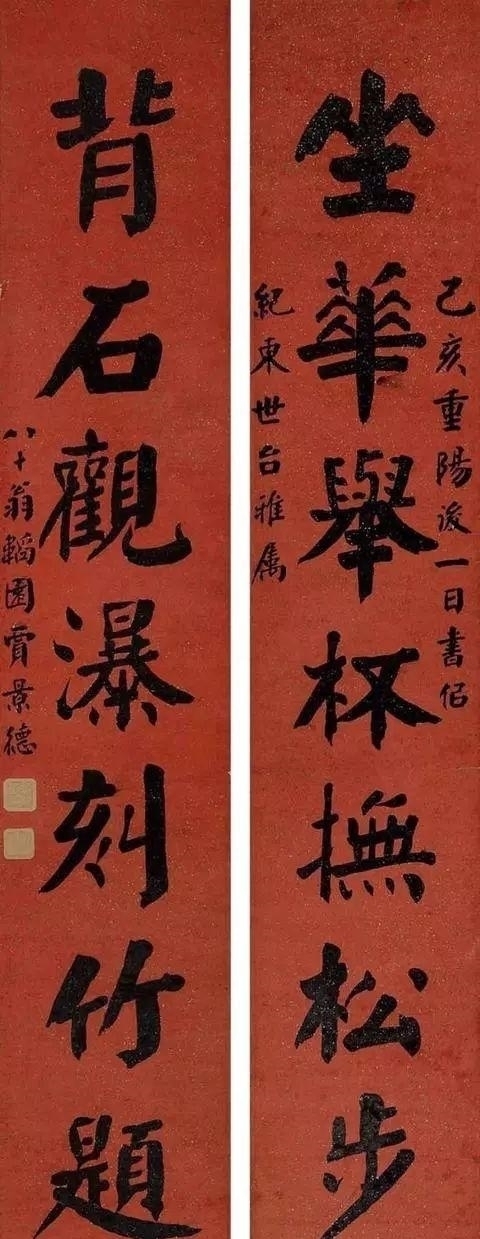 坐華舉杯撫松步
己亥重陽後一日書佀
紀東世台雅属
背石觀瀑刻竹題
八十翁韜園賈景德